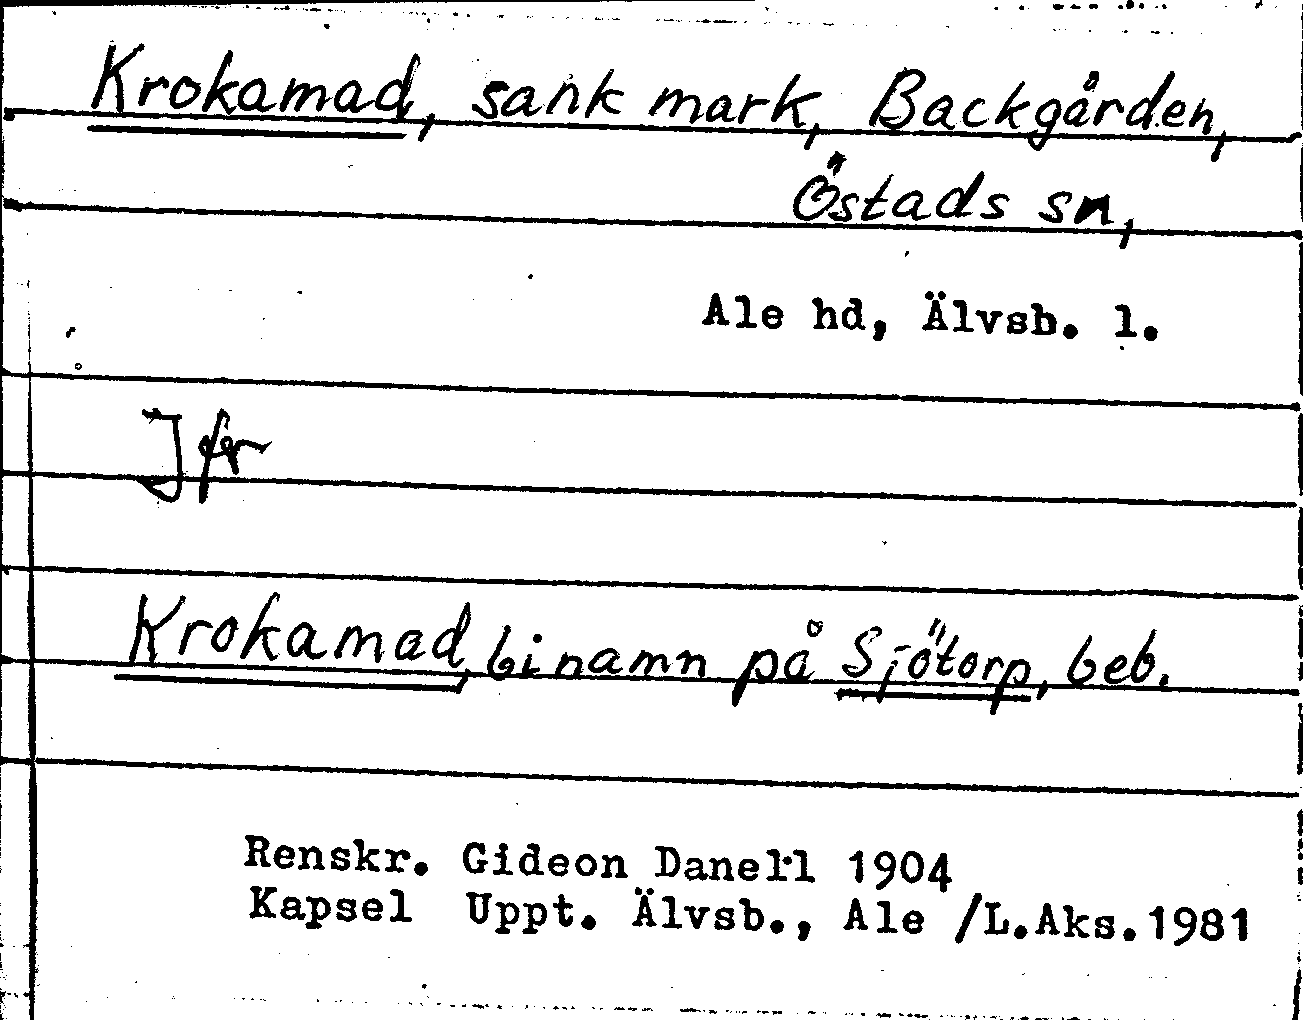 Krokamad, sank mark, Backgården,
Östads sn,
Ale hd, Älvsb. l.
Jfr
Krokamad, binamn på Sjötorp, beb.
Renskr. Gideon Danell 1904
Kapsel Uppt. Älvsb., Ale /L.Aks.1981